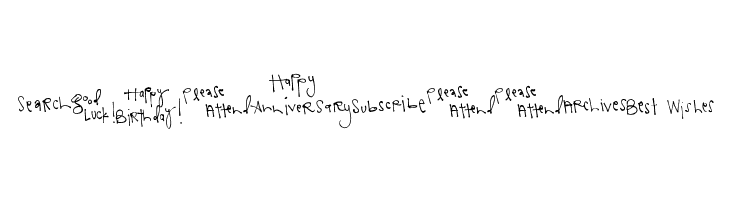 Search Good Luck! Happy Birthday! Please Attend Happy Anniversary Subscribe Please Attend Please Attend Archives Best Wishes